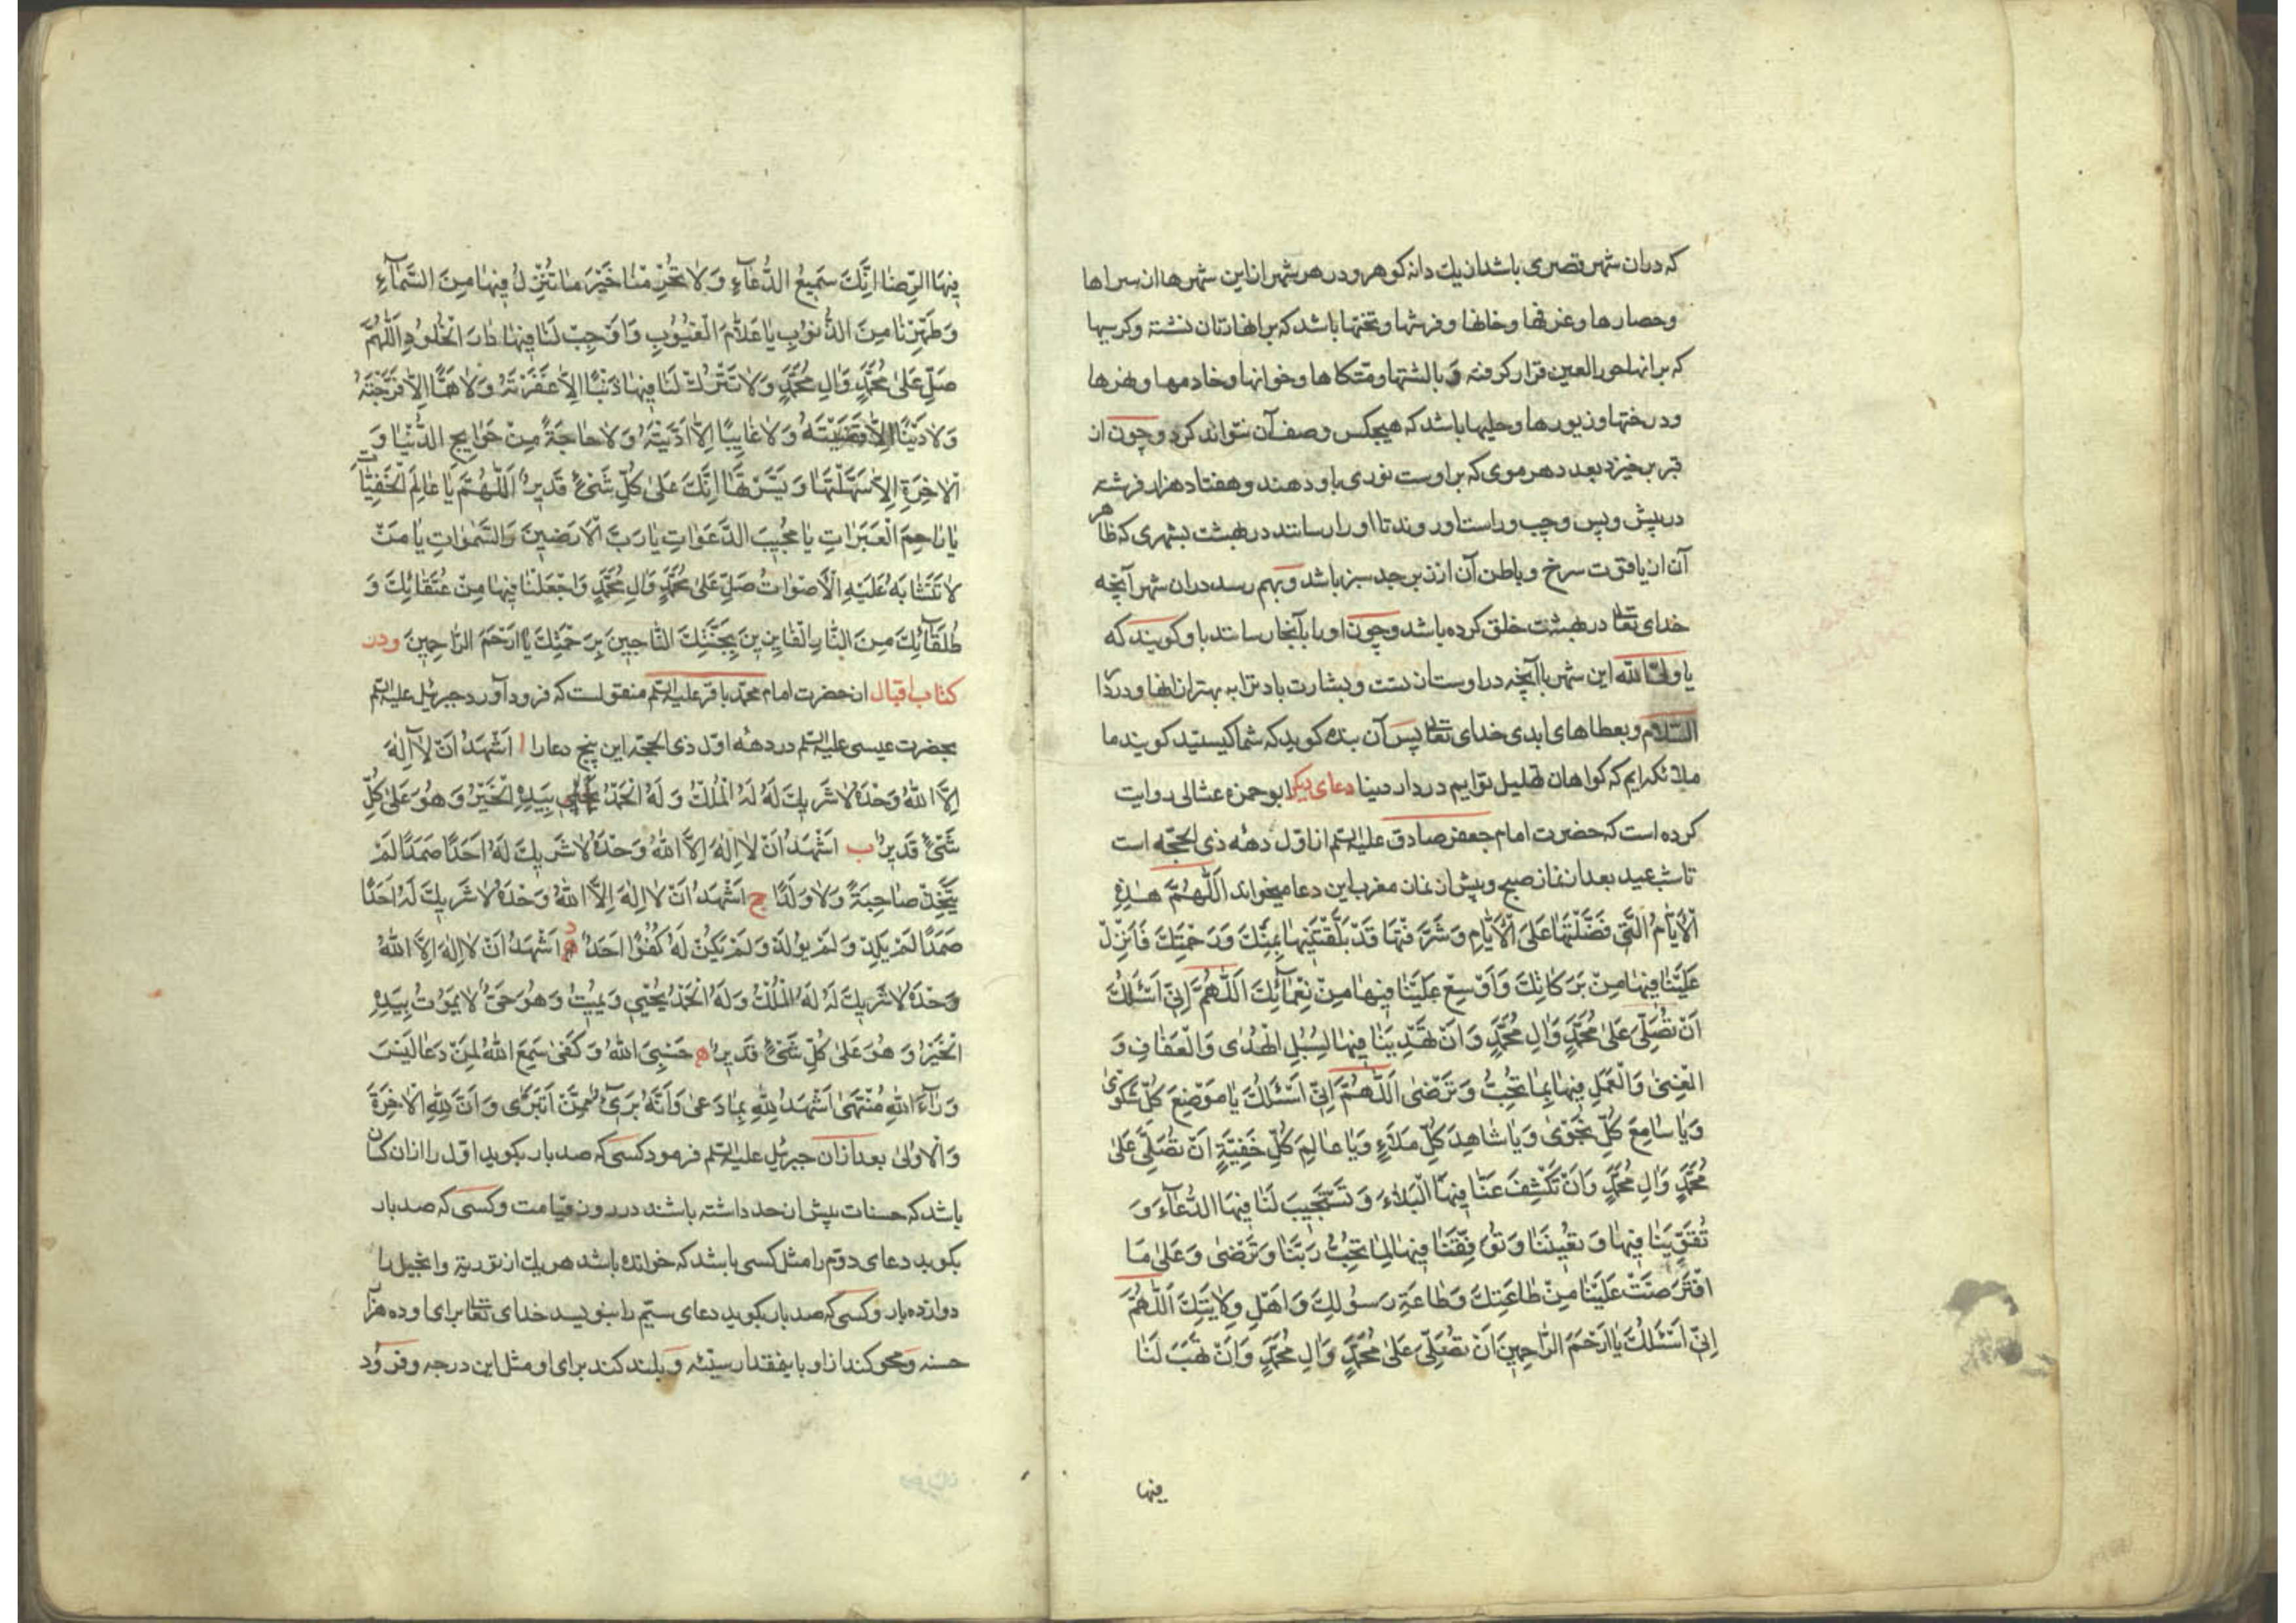 که دران شهر قصری باشد از یك دانه کوهر و در هر شهر از این شهرها از سراها
و حصارها و غرفها و خانها و فرشها و تختها باشد که بر انها زنان نشسته و کرسیها
که بر انها حور العین قرار کرفته و بالشتها و متکاها و خوانها و خادمها و نهرها
و درختها و زیورها و حلیها باشد که هیچکس وصف آن نتواند کرد و چون از
قبر برخیزد بعدد هر موی که بر اوست نوری باو دهند و هفتاد هزار فرشته
در پیش و پس و چپ و راست او روند تا او را رسانند در بهشت بشهری که ظاهر
آن از یاقوت سرخ و باطن آن از زبرجد سبز باشد و بهم رسد دران شهر آنچه
خدای تعالی در بهشت خلق کرده باشد و چون او را بآنجا رسانند باو کویند که
یا ولی الله این شهر باآنچه در اوست از تست و بشارت باد ترا به بهتر از انها و در دار
السّلام و بعطاهای ابدی خدای تعالی پس آن بنده کوید که شما کیستید کویند ما
ملائکه ایم که کواهان تهلیل توایم در دار دنیا دعای دیکر ابو حمزه ثمالی روایت
کرده است که حضرت امام جعفر صادق علیه السلم از اوّل دهه ذی الحجّه است
تا شب عید بعد از نماز صبح و پیش از نماز مغرب این دعا میخواند اَللّٰهُمَّ هٰذِهِ
الْاَیّٰامُ الَّتی فَضَّلْتَهٰا عَلَی الْاَیّٰامِ وَ شَرَّفْتَهٰا قَدْ بَلَّغْتَنیهٰا بِمَنِّكَ وَ رَحْمَتِكَ فَاَنْزِلْ
عَلَیْنٰا فیهٰا مِنْ بَرَکٰاتِكَ وَ اَوْسِعْ عَلَیْنٰا فیهٰا مِنْ نِعْمٰآئِكَ اَللّٰهُمَّ اِنّی اَسْئَلُكَ
اَنْ تُصَلِّیَ عَلیٰ مُحَمَّدٍ وَ اٰلِ مُحَمَّدٍ وَ اَنْ تَهْدِیَنٰا فیهٰا لِسُبُلِ الْهُدٰی وَ الْعَفٰافِ وَ
الْغِنیٰ وَ الْعَمَلِ فیهٰا بِمٰا تُحِبُّ وَ تَرْضٰی اَللّٰهُمَّ اِنّی اَسْئَلُكَ یٰا مَوْضِعَ کُلِّ شَکْویٰ
وَ یٰا سٰامِعَ کُلِّ نَجْویٰ وَ یٰا شٰاهِدَ کُلِّ مَلَاءٍ وَ یٰا عٰالِمَ کُلِّ خَفِیَّةٍ اَنْ تُصَلِّیَ عَلیٰ
مُحَمَّدٍ وَ اٰلِ مُحَمَّدٍ وَ اَنْ تَکْشِفَ عَنّٰا فیهَا الْبَلٰاءَ وَ تَسْتَجیبَ لَنٰا فیهَا الدُّعٰآءَ وَ
تُقَوِّیَنٰا فیهٰا وَ تُعینَنٰا وَ تُوَفِّقَنٰا فیهٰا لِمٰا تُحِبُّ رَبَّنٰا وَ تَرْضٰی وَ عَلیٰ مَا
افْتَرَضْتَ عَلَیْنٰا مِنْ طٰاعَتِكَ وَ طٰاعَةِ رَسُولِكَ وَ اَهْلِ وِلٰایَتِكَ اَللّٰهُمَّ
اِنّی اَسْئَلُكَ یٰا اَرْحَمَ الرّٰاحِمینَ اَنْ تُصَلِّیَ عَلیٰ مُحَمَّدٍ وَ اٰلِ مُحَمَّدٍ وَ اَنْ تَهَبَ لَنٰا
فیها
فیهَا الرِّضٰا اِنَّكَ سَمیعُ الدُّعٰآءِ وَ لٰا تَحْرِمْنٰا خَیْرَ مٰا تُنْزِلُ فیهٰا مِنَ السَّمٰآءِ
وَ طَهِّرْنٰا مِنَ الذُّنُوبِ یٰا عَلّٰامَ الْغُیُوبِ وَ اَوْجِبْ لَنٰا فیهٰا دٰارَ الْخُلُودِ اَللّٰهُمَّ
صَلِّ عَلیٰ مُحَمَّدٍ وَ اٰلِ مُحَمَّدٍ وَ لٰا تَتْرُكْ لَنٰا فیهٰا ذَنْبًا اِلّٰا غَفَرْتَهُ وَ لٰا هَمًّا اِلّٰا فَرَّجْتَهُ
وَ لٰا دَیْنًا اِلّٰا قَضَیْتَهُ وَ لٰا غٰایِبًا اِلّٰا اَدَّیْتَهُ وَ لٰا حٰاجَةً مِنْ حَوٰایِجِ الدُّنْیٰا وَ
الْاٰخِرَةِ اِلّٰا سَهَّلْتَهٰا وَ یَسَّرْتَهٰا اِنَّكَ عَلیٰ کُلِّ شَیْءٍ قَدیرٌ اَللّٰهُمَّ یٰا عٰالِمَ الْخَفِیّٰاتِ
یٰا رٰاحِمَ الْعَبَرٰاتِ یٰا مُجیبَ الدَّعَوٰاتِ یٰا رَبَّ الْاَرَضینَ وَ السَّمٰوٰاتِ یٰا مَنْ
لٰا تَتَشٰابَهُ عَلَیْهِ الْاَصْوٰاتُ صَلِّ عَلیٰ مُحَمَّدٍ وَ اٰلِ مُحَمَّدٍ وَ اجْعَلْنٰا فیهٰا مِنْ عُتَقٰائِكَ وَ
طُلَقٰآئِكَ مِنَ النّٰارِ الْفٰایِزینَ بِجَنَّتِكَ النّٰاجینَ بِرَحْمَتِكَ یٰا اَرْحَمَ الرّٰاحِمینَ و در
کتاب اقبال از حضرت امام محمّد باقر علیه السلم منقولست که فرود آورد جبرئیل علیه السلم
بحضرت عیسی علیه السلم در دهه اوّل ذی الحجّه این پنج دعا را ا اَشْهَدُ اَنْ لٰا اِلٰهَ
اِلَّا اللهُ وَحْدَهُ لٰا شَریكَ لَهُ لَهُ الْمُلْكُ وَ لَهُ الْحَمْدُ بِیَدِهِ الْخَیْرُ وَ هُوَ عَلیٰ کُلِّ
شَیْءٍ قَدیرٌ ب اَشْهَدُ اَنْ لٰا اِلٰهَ اِلَّا اللهُ وَحْدَهُ لٰا شَریكَ لَهُ اَحَدًا صَمَدًا لَمْ
یَتَّخِذْ صٰاحِبَةً وَ لٰا وَلَدًا ج اَشْهَدُ اَنْ لٰا اِلٰهَ اِلَّا اللهُ وَحْدَهُ لٰا شَریكَ لَهُ اَحَدًا
صَمَدًا لَمْ یَلِدْ وَ لَمْ یُولَدْ وَ لَمْ یَکُنْ لَهُ کُفُوًا اَحَدٌ د اَشْهَدُ اَنْ لٰا اِلٰهَ اِلَّا اللهُ
وَحْدَهُ لٰا شَریكَ لَهُ لَهُ الْمُلْكُ وَ لَهُ الْحَمْدُ یُحْیی وَ یُمیتُ وَ هُوَ حَیٌّ لٰا یَمُوتُ بِیَدِهِ
الْخَیْرُ وَ هُوَ عَلیٰ کُلِّ شَیْءٍ قَدیرٌ ه حَسْبِیَ اللهُ وَ کَفیٰ سَمِعَ اللهُ لِمَنْ دَعٰا لَیْسَ
وَرٰآءَ اللهِ مُنْتَهیٰ اَشْهَدُ لِلّٰهِ بِمٰا دَعیٰ وَ اَنَّهُ بَرَیٌ مِمَّنْ تَبَرَّی وَ اَنَّ لِلّٰهِ الْاٰخِرَةَ
وَ الْاُولیٰ بعد ازان جبرئیل علیه السلم فرمود کسی که صد بار بکوید اوّل را ازان کسان
باشد که حسنات بیش از حد داشته باشند در روز قیامت و کسی که صد بار
بکوید دعای دوّم را مثل کسی باشد که خوانده باشد هر یك از توریة و انجیل را
دوازده بار و کسی که صد بار بکوید دعای سیّم را بنویسد خدای تعالی برای او ده هزار
حسنه و محو کند از او باینمقدار سیّئه و بلند کند برای او مثل این درجه و فرود